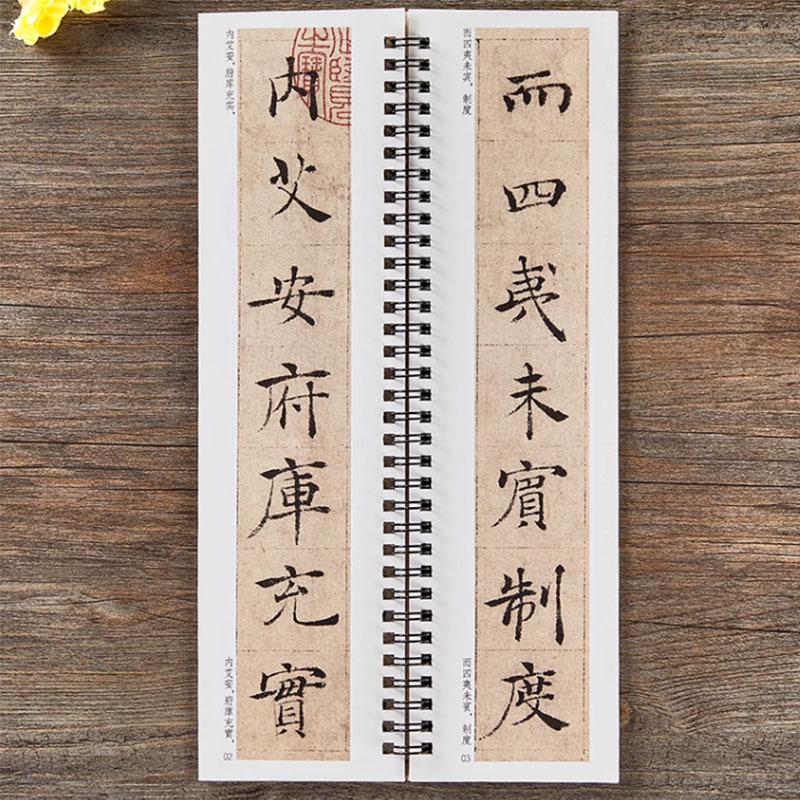 内艾安，府库充实，
内艾安府庫充實
内艾安，府庫充實，
02
而四夷未宾，制度
而四夷未賓制度
而四夷未賓，制度
03